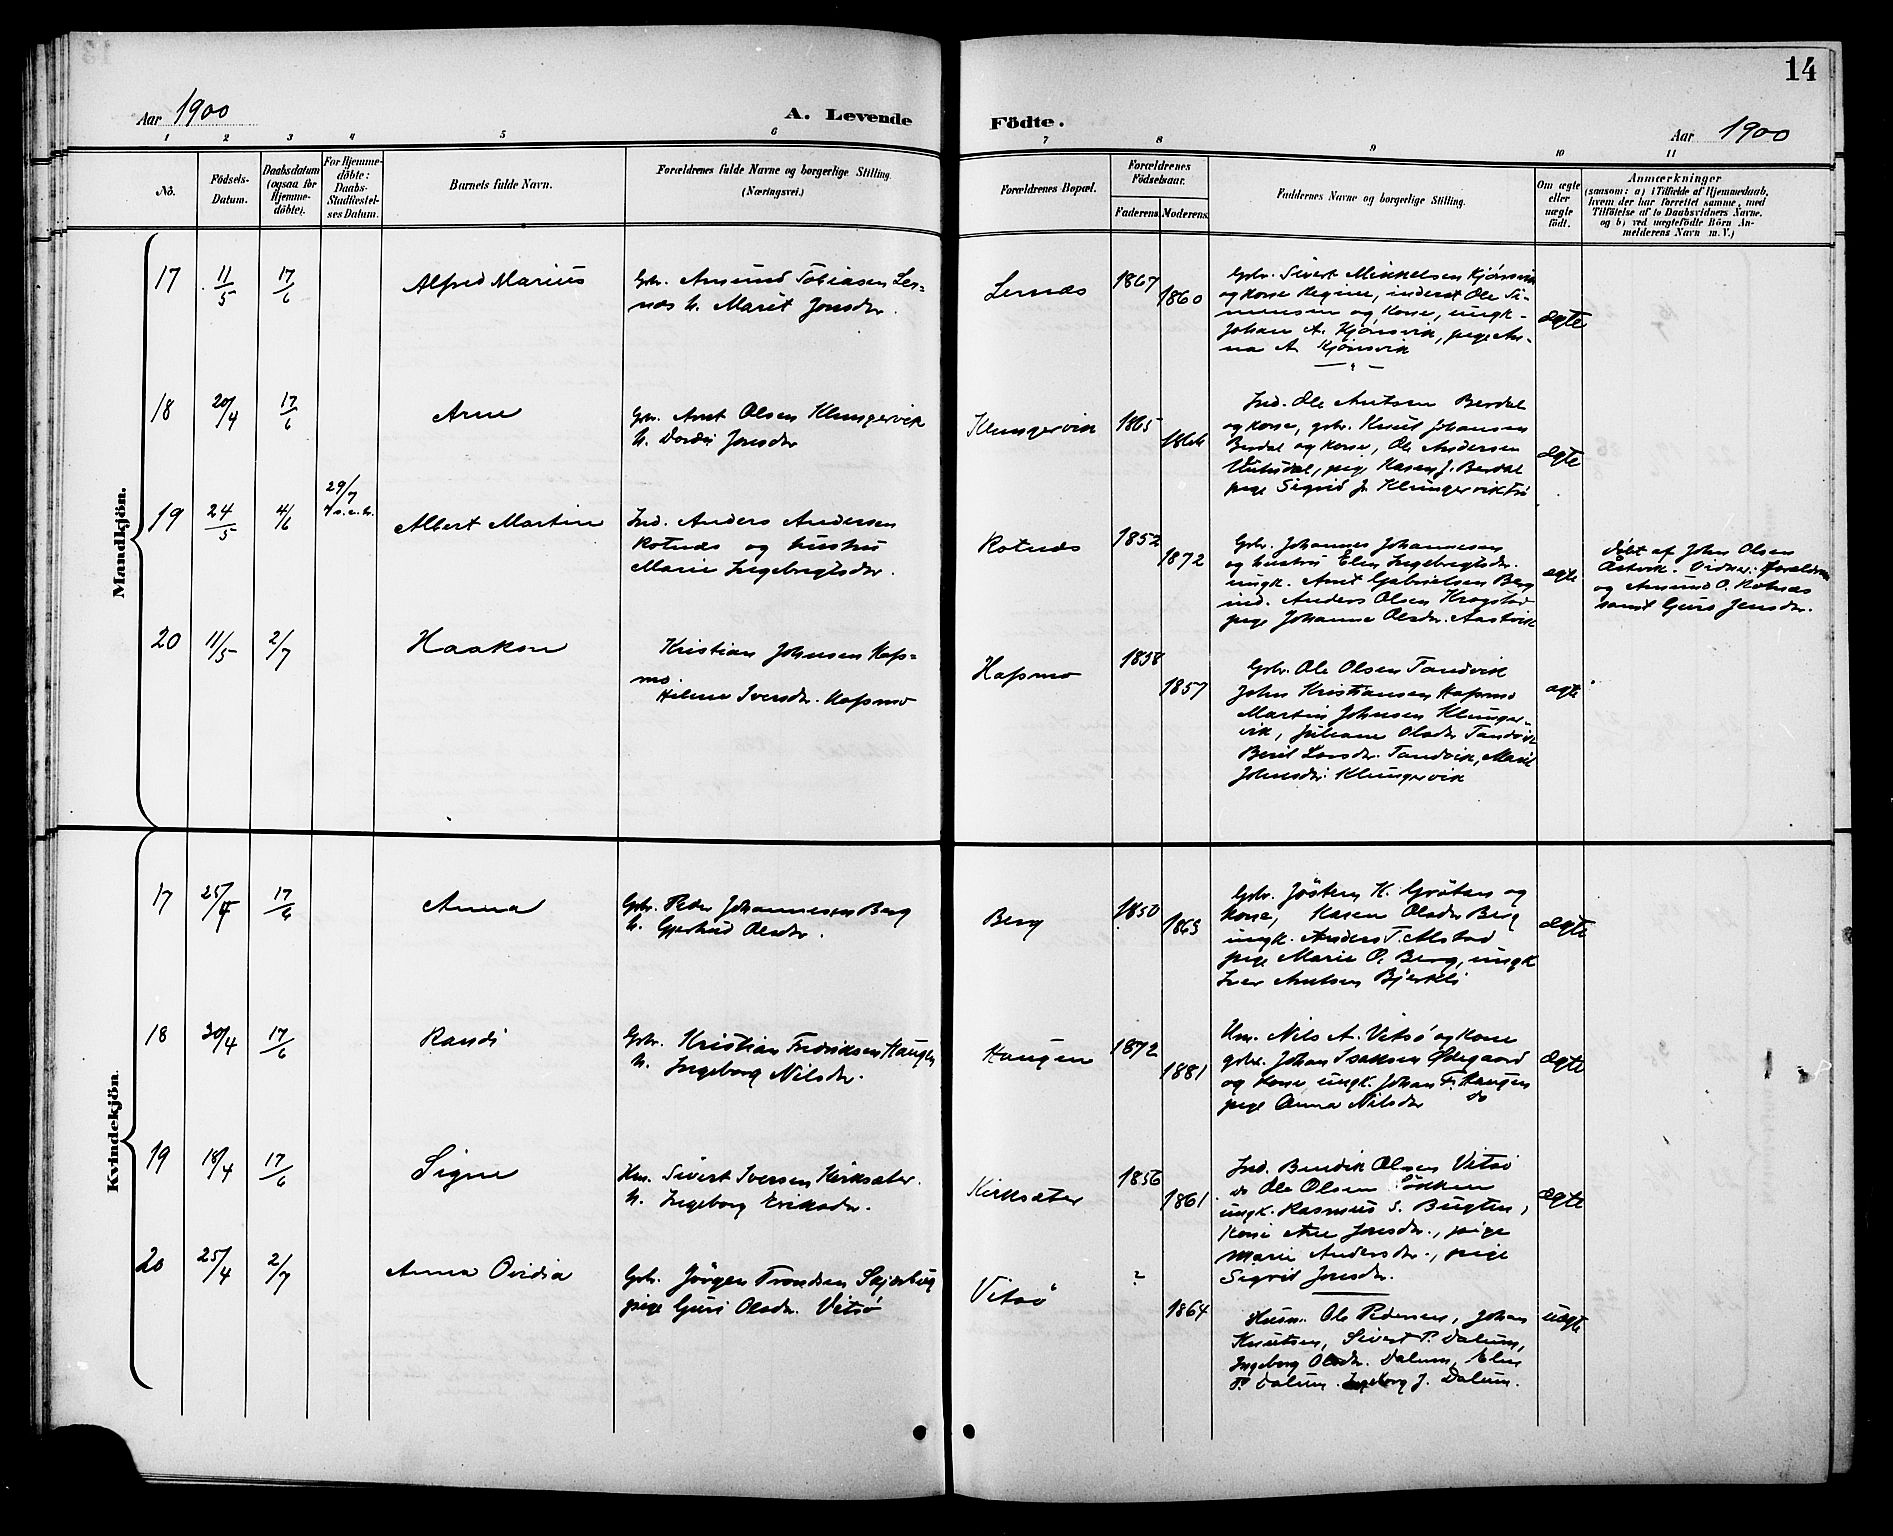 14
Aar 1900
A. Levende
Födte.
Aar 1900
1 2 3 4 5 6
7 8 9 10 11
No.
Födsels-
Datum.
Daabsdatum
(ogsaa for
Hjemme-
döbte).
For Hjemme-
döbte:
Daabs-
Stadfæstel-
ses Datum.
Barnets fulde Navn.
Forældrenes fulde Navne og borgerlige Stilling
(Næringsvei.)
Forældrenes Bopæl.
Forældrenes
Födselsaar.
Faderens. Moderens.
Faddernes Navne og borgerlige Stilling.
Om ægte
eller
uægte
födt.
Anmærkninger
(saasom: a) i Tilfælde af Hjemmedaab,
hvem der har forrettet samme, med
Tilföielse af to Daabsvidners Navne.
og b) ved uægtefödte Börn An-
melderens Navn m. V.)
Mandkjön.
17
11/5
17/6
Alfred Marius
Gbr. Amund Tobiasen Ler-
næs h. Marit Jonsdr.
Lernæs
1867
1860
Gbr. Sivert Mikkelsen Kjönsvik
og kone Regine, inderst Ole Si-
monsen og kone, ungk.
Johan A. Kjönsvik, pige An-
na A. Kjönsvik
ægte
18
20/4
17/6
Arne
Gbr. Arnt Olsen Klungervik
h. Dordi Jonsdr
Klungervik
1865
1866
Ind. Ole Antsen Berdal
og kone, gbr. Knut Johansen
Berdal og kone, Ole Andersen
pige Karen J. Berdal
pige Sigrid J. Klungervik
ægte
19
24/5
4/6
29/7
Albert Martin
Ind. Anders Andersen
Rotnæs og hustru
Marie Ingebregtsdr.
Rotnæs
1852
1872
Gbr. Johannes Johannesen
og hustru Elen Ingebregtsdr.
ungk. Arnt Gabrielsen Berg
ind. Anders Olsen Krogstad
pige Johanna Olsdr. Aastvik
ægte
döbt af John Olsen
Åstvik. Vidner: Forældrene
og Amund O. Rotnæs
samt Guro Jensdr.
20
11/5
2/7
Haakon
Kristian Johnsen Hafs-
mo.
Helene Iversdr. Hafsmo
Hafsmo
1858
1857
Gbr. Ole Olsen Tandvik
John Kristiansen Hafsmo
Martin Johnsen Klunger-
vik, Juliane Olsdr Tandvik
Berit Larsdr. Tandvik, Marit
Johnsdr. Klungervik
ægte
Kvindekjön.
17
25/4
17/6
Anna
Gbr. Peder Johannesen Berg
h. Gjertrud Olsdr.
Berg
1850
1863
Gbr. Jösten K. Gröten og
kone, Karen Olsdr Berg
ungk. Anders T. Alstad
pige Marie O. Berg, ungk
Iver Antsen Bjerkli
ægte
18
30/4
17/6
Randi
Gbr. Kristian Fredriksen Haugen
h. Ingeborg Nilsdr.
Haugen
1872
1881
Hm. Nils A. Vitsö og kone
gbr. Johan Isaksen Ødegaard
og kone ungk. Johan F. Haugen
pige Anna Nilsdr do
ægte
19
18/4
17/6
Signe
Hm. Sivert Iversen Kirksæter.
h. Ingeborg Eriksdr.
Kirksæter
1856
1861
Ind. Bendik Olsen Vitsö
do Ole Olsen Sökken
ungk. Rasmus S. Bugten,
kone Ane Jonsdr., pige
Marie Andersdr., pige
Sigrid Jonsdr.
ægte
20
25/4
2/7
Anna Ovidia
Gbr. Jörgen Trondsen Skjærbug
pige Guri Olsdr. Vitsö
Vitsö
?
1864
Husm. Ole Pedersen, Johan
Knutsen, Sivert P. Dalum,
Ingeborg Olsdr. Dalum, Elen
P. Dalum. Ingeborg J. Dalum.
uægte